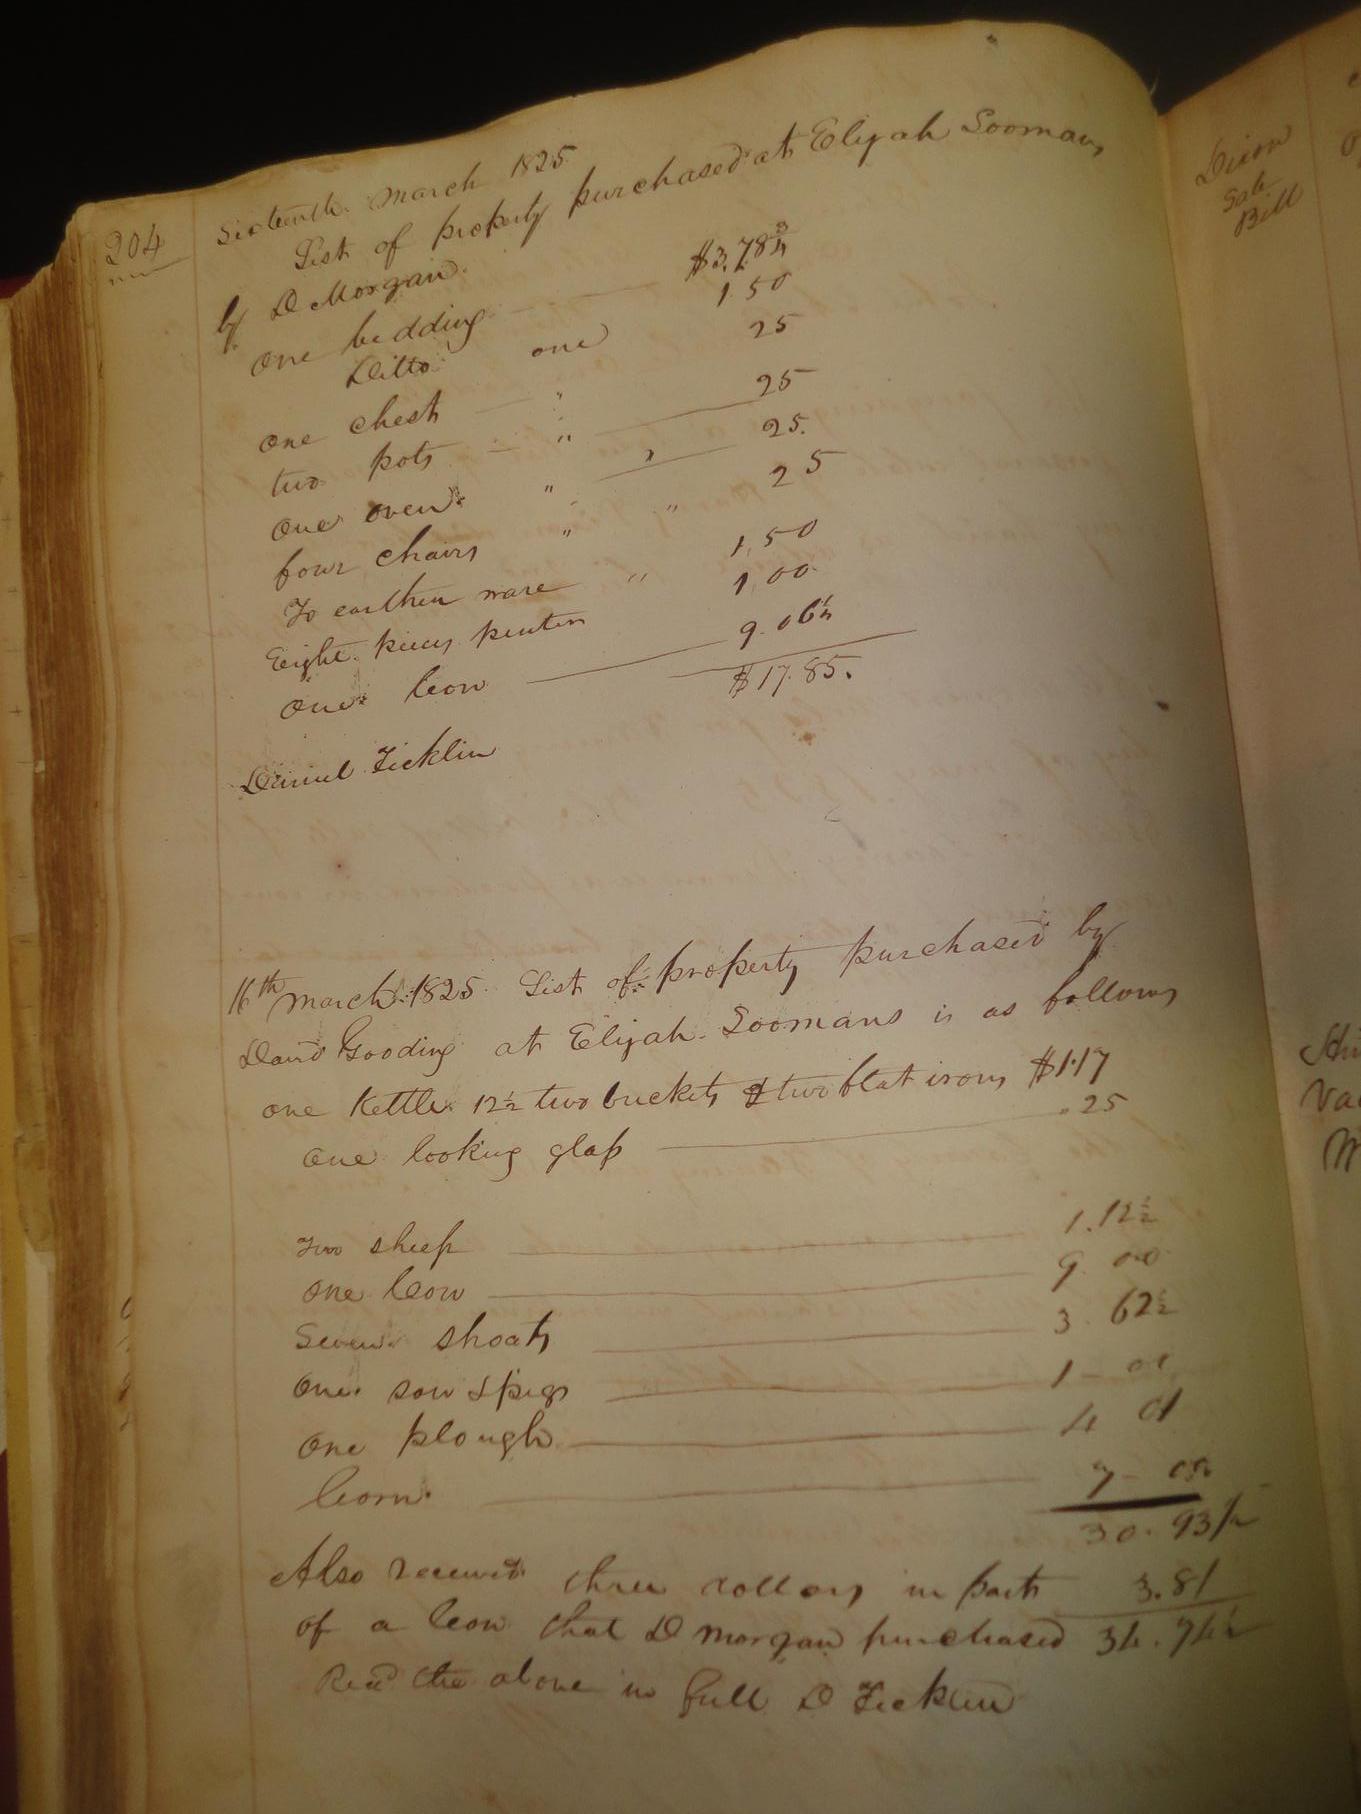 204
Sixteenth March 1825
List of property purchased at Elijah Soomans
by D Morgan
one bedding $3.78¾
Ditto one 1.50
one chest " 25
two pots " 25
one oven " " 25.
four chairs " " 25
To earthen ware " 1,50
Eight pieces peuter 1,00
one Cow 9.06¼
$17.85.
Daniel Ficklin
16th March 1825 List of property purchased by
David Gooding at Elijah Soomans is as follows
one Kettle 12½ two buckets & two flat irons $1.17
one looking glass .25
Two sheep 1.12½
one Cow 9 00
Seven shoats 3.62½
one sow & pigs 1 - 00
one plough 4 01
Corn 7 - 00
30.93½
Also received three dollars in part 3.81
of a Cow that D Morgan purchased 34.74½
Recd the above in full D Ficklin
Dixon
Sale
Bill